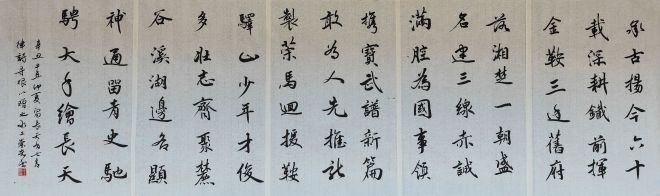 承古揚今六十
載深耕鐵前揮
金鞍三返舊府
落湘楚一朝盛
名建三線赤誠
滿腔為國事領
携寶武譜新篇
敢為人先推
製萊馬迴援鞍
驛山少年才俊
多壯志齊聚麓
谷溪湖邊各顯
神通留青史馳
騁大手繪長天
辛丑